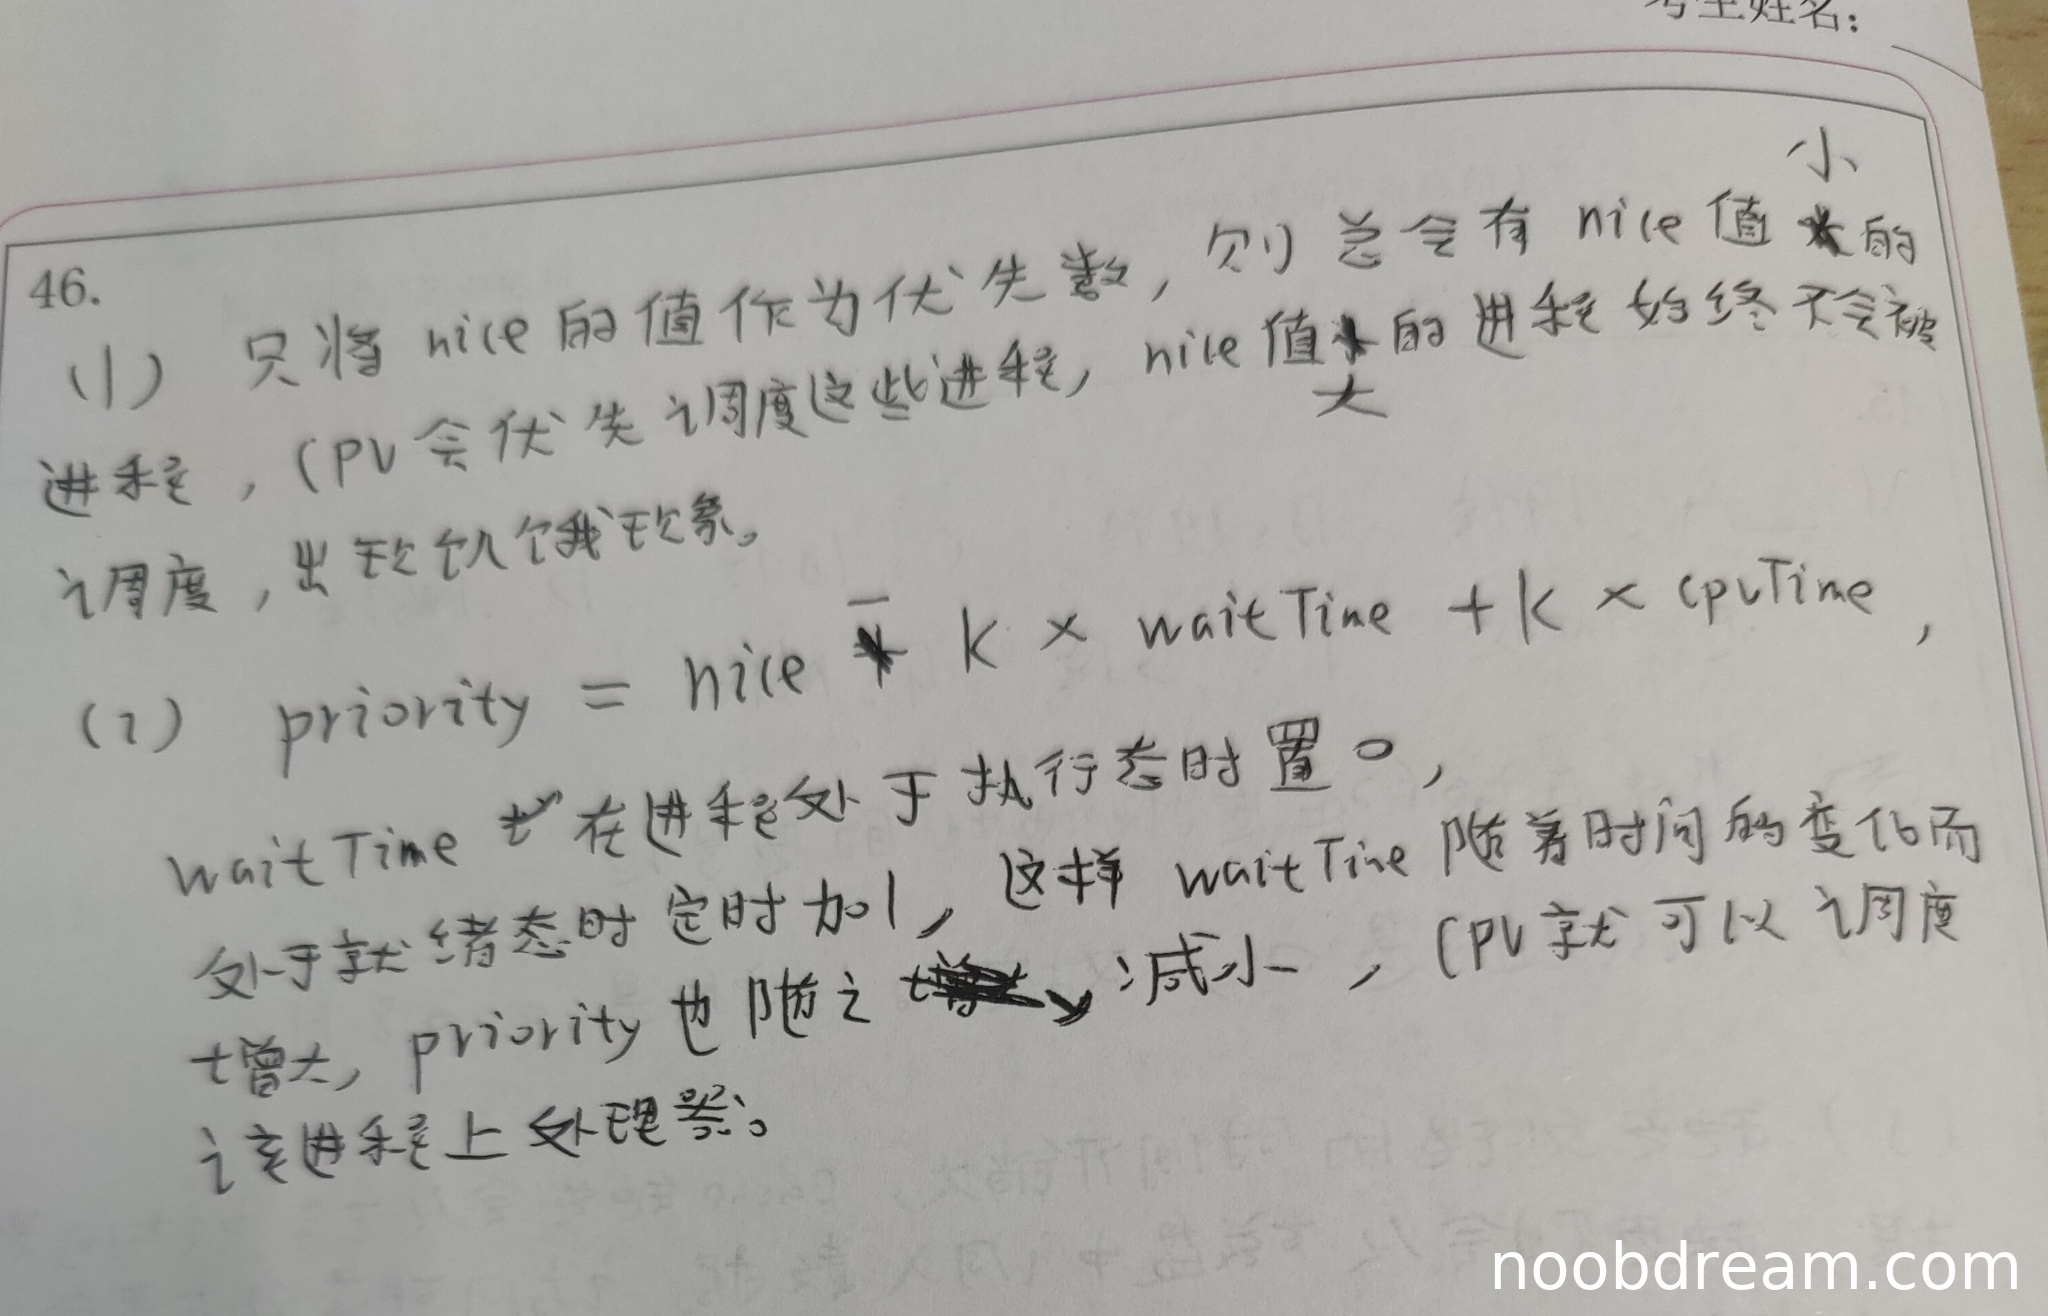 考生姓名：
46.
(1) 只将 nice 的值作为优先数，则总会有 nice 值小的
进程，CPU会优先调度这些进程，nice值大的进程始终不会被
调度，出现饥饿现象。
(2) priority = nice - k × waitTime + k × cpuTime，
waitTime 在进程处于执行态时置0，
处于就绪态时定时加1，这样 waitTime 随着时间的变化而
增大，priority 也随之减小，CPU就可以调度
该进程上处理器。
noobdream.com